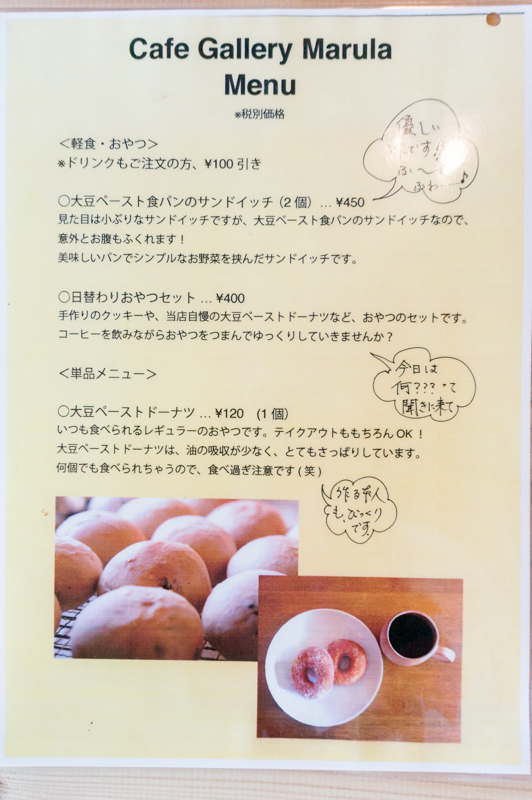 Cafe Gallery Marula
Menu
※税別価格
＜軽食・おやつ＞
※ドリンクもご注文の方、¥100 引き
優しい
です!
ふ〜
ふわ……♪
○大豆ペースト食パンのサンドイッチ（2 個）… ¥450
見た目は小ぶりなサンドイッチですが、大豆ペースト食パンのサンドイッチなので、
意外とお腹もふくれます！
美味しいパンでシンプルなお野菜を挟んだサンドイッチです。
○日替わりおやつセット … ¥400
手作りのクッキーや、当店自慢の大豆ペーストドーナツなど、おやつのセットです。
コーヒーを飲みながらおやつをつまんでゆっくりしていきませんか？
今日は
何???って
聞きに来て
＜単品メニュー＞
○大豆ペーストドーナツ … ¥120 （1 個）
いつも食べられるレギュラーのおやつです。テイクアウトももちろん OK！
大豆ペーストドーナツは、油の吸収が少なく、とてもさっぱりしています。
何個でも食べられちゃうので、食べ過ぎ注意です ( 笑 )
作る本人
も、びっくり
です。